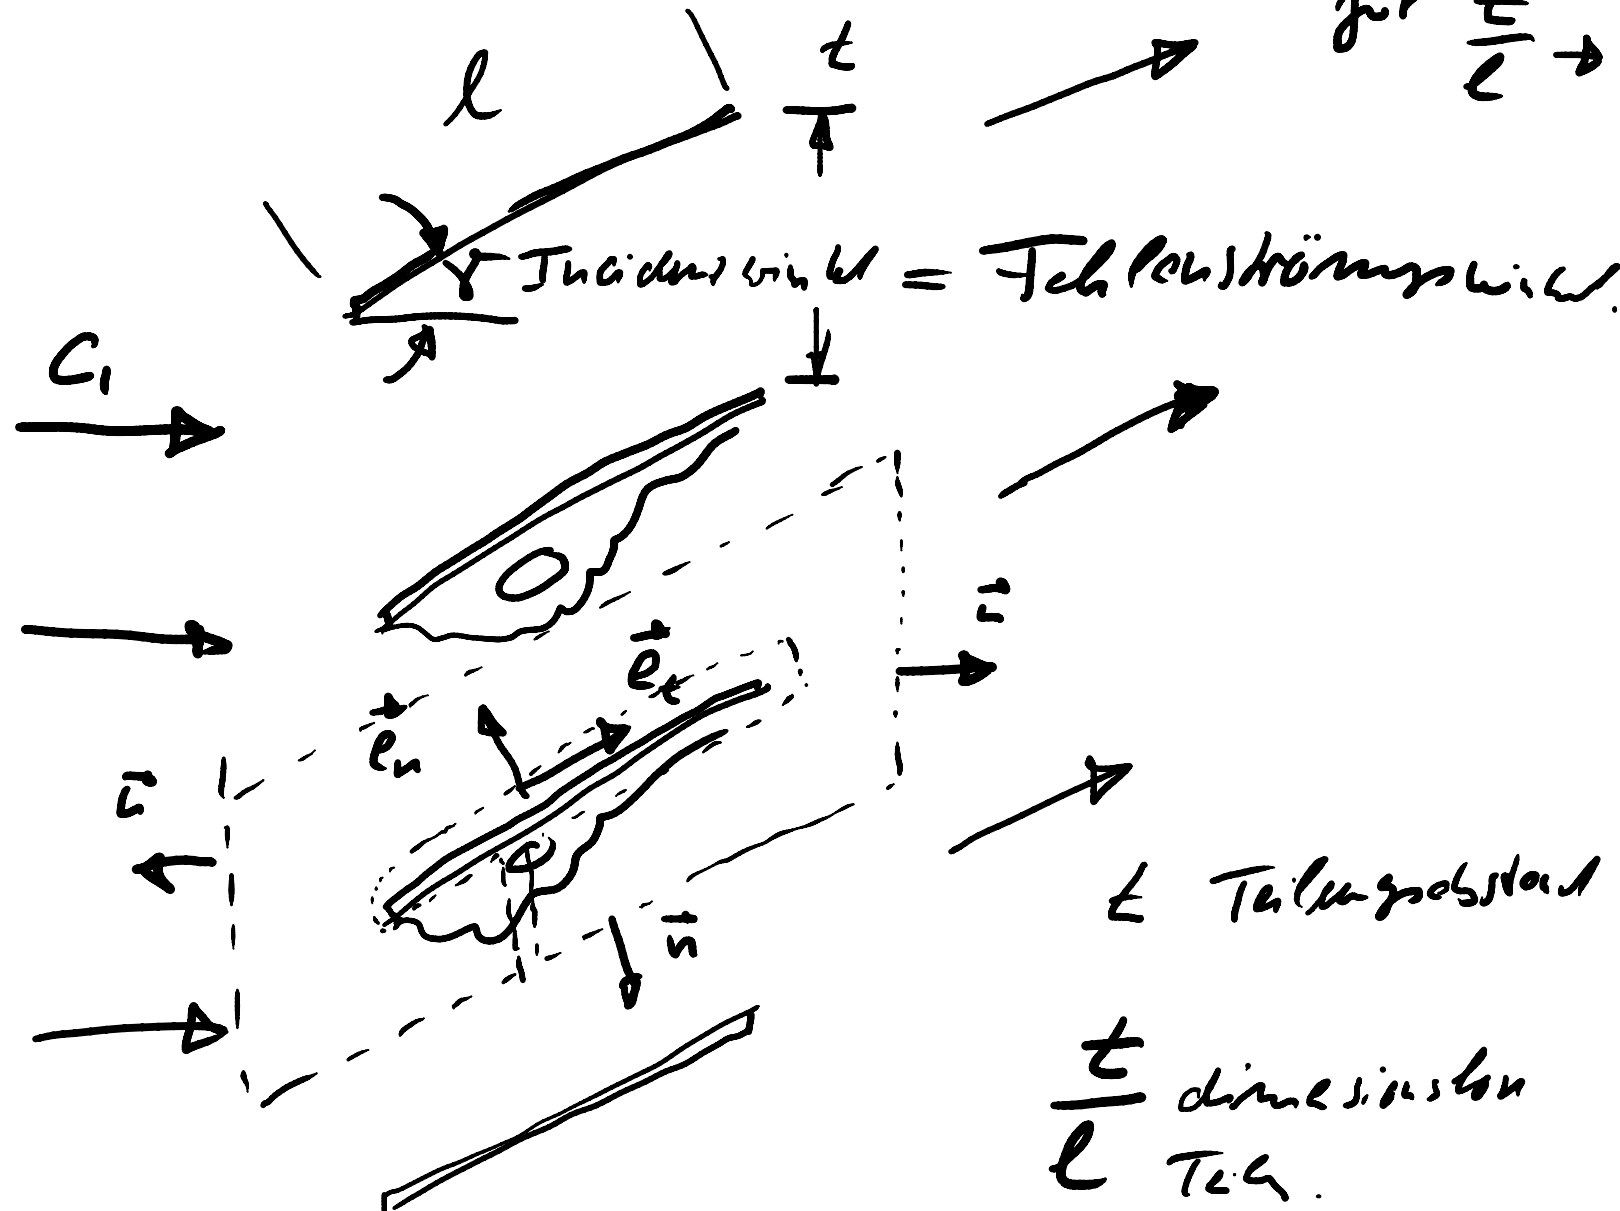 für t/l →
l
t
γ Inzidenzwinkel = Fehlanströmungswinkel.
C₁
n⃗
e⃗ₜ
e⃗ₙ
n⃗
n⃗
t Teilungsabstand
t/l dimensionslose